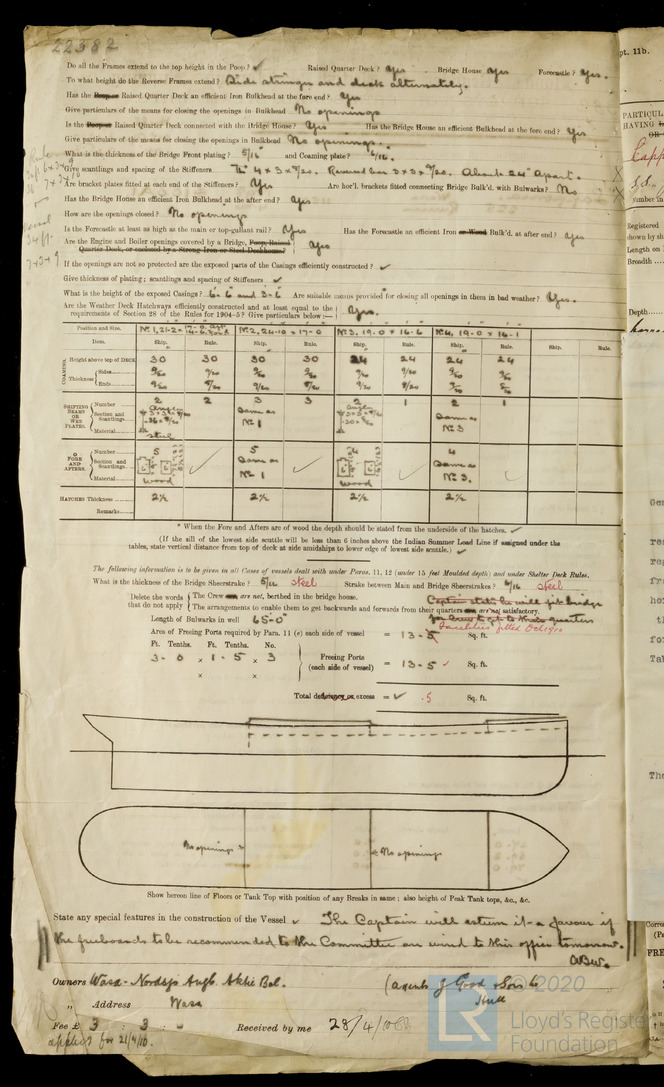 22382
Do all the Frames extend to the top height in the Poop? ✓ Raised Quarter Deck? Yes Bridge House Yes Forecastle? Yes.
To what height do the Reverse Frames extend? Side stringer and deck alternately.
Has the Poop or Raised Quarter Deck an efficient Iron Bulkhead at the fore end? Yes
Give particulars of the means for closing the openings in Bulkhead No openings
Is the Poop or Raised Quarter Deck connected with the Bridge House? Yes Has the Bridge House an efficient Bulkhead at the fore end? Yes
Give particulars of the means for closing the openings in Bulkhead No openings.
What is the thickness of the Bridge Front plating? 5/16 and Coaming plate? 6/16.
Give scantlings and spacing of the Stiffeners 7½" 4 x 3 x 9/20. Reverse bar 3 x 3 x 7/20. About 24" Apart.
Are bracket plates fitted at each end of the Stiffeners? Yes Are hor'l. brackets fitted connecting Bridge Bulk'd. with Bulwarks? No
Has the Bridge House an efficient Iron Bulkhead at the after end? Yes
How are the openings closed? No openings
Is the Forecastle at least as high as the main or top-gallant rail? Yes Has the Forecastle an efficient Iron or Wood Bulk'd. at after end? Yes
Are the Engine and Boiler openings covered by a Bridge, Poop, Raised
Quarter Deck, or enclosed by a Strong Iron or Steel Deckhouse? Yes
If the openings are not so protected are the exposed parts of the Casings efficiently constructed? ✓
Give thickness of plating; scantlings and spacing of Stiffeners ✓
What is the height of the exposed Casings? 6-6 and 3-6 Are suitable means provided for closing all openings in them in bad weather? Yes.
Are the Weather Deck Hatchways efficiently constructed and at least equal to the
requirements of Section 28 of the Rules for 1904-5? Give particulars below:— Yes.
Position and Size. No 1, 21-2 x No 2, 24-10 x 17-0 No 3. 19-0 x 16-6 No 4. 19-0 x 16-1
Item. Ship. Rule. Ship. Rule. Ship. Rule. Ship. Rule. Ship. Rule.
COAMING. Height above top of DECK 30 30 30 30 24 24 24 24
Thickness Sides
Ends
SHIFTING BEAMS OR WEB PLATES. Number 2 2 3 3 2 1 2 1
Section and Scantlings Same as No 1 Same as No 3
Material Steel
FORE AND AFTERS. Number 5 5 4 4
Section and Scantlings Same as No 1 Same as No 3.
Material wood wood
HATCHES Thickness 2½ 2½ 2½ 2½
Remarks
* When the Fore and Afters are of wood the depth should be stated from the underside of the hatches. ✓
(If the sill of the lowest side scuttle will be less than 6 inches above the Indian Summer Load Line if assigned under the
tables, state vertical distance from top of deck at side amidships to lower edge of lowest side scuttle.) ✓
The following information is to be given in all Cases of vessels dealt with under Paras. 11, 12 (under 15 feet Moulded depth) and under Shelter Deck Rules.
What is the thickness of the Bridge Sheerstrake? Steel Strake between Main and Bridge Sheerstrakes? 6/16 Steel
Delete the words that do not apply
The Crew are, are not, berthed in the bridge house.
The arrangements to enable them to get backwards and forwards from their quarters are, are not satisfactory.
Captain states he will fit bridge
for crew to get to their quarters
Facilities fitted Oct 1910
Length of Bulwarks in well 65-0"
Area of Freeing Ports required by Para. 11 (e) each side of vessel = 13-5 Sq. ft.
Ft. Tenths. Ft. Tenths. No.
3-0 x 1-5 x 3
Freeing Ports (each side of vessel) = 13-5 ✓ Sq. ft.
x x
Total deficiency or excess = ✓ .5 Sq. ft.
No openings
No openings
Show hereon line of Floors or Tank Top with position of any Breaks in same; also height of Peak Tank tops, &c., &c.
State any special features in the construction of the Vessel ✓ The Captain will esteem it a favour if
the freeboards to be recommended to the Committee are wired to this office tomorrow.
Owners Wasa-Nordsjo Angb. Aktie Bol. (agents J Good & Sons Ld
Hull
" Address Wasa
Fee £ 3 : 3 : Received by me 28/4/10
applied for 21/4/10.
© 2020
LR
Lloyd's Register
Foundation
pt. 11b.
PARTICUL
HAVING
Capp
S.S.
Number in
Registered
shown by sh
Length on
Breadth
Depth
Gen
The
Corre
FRE